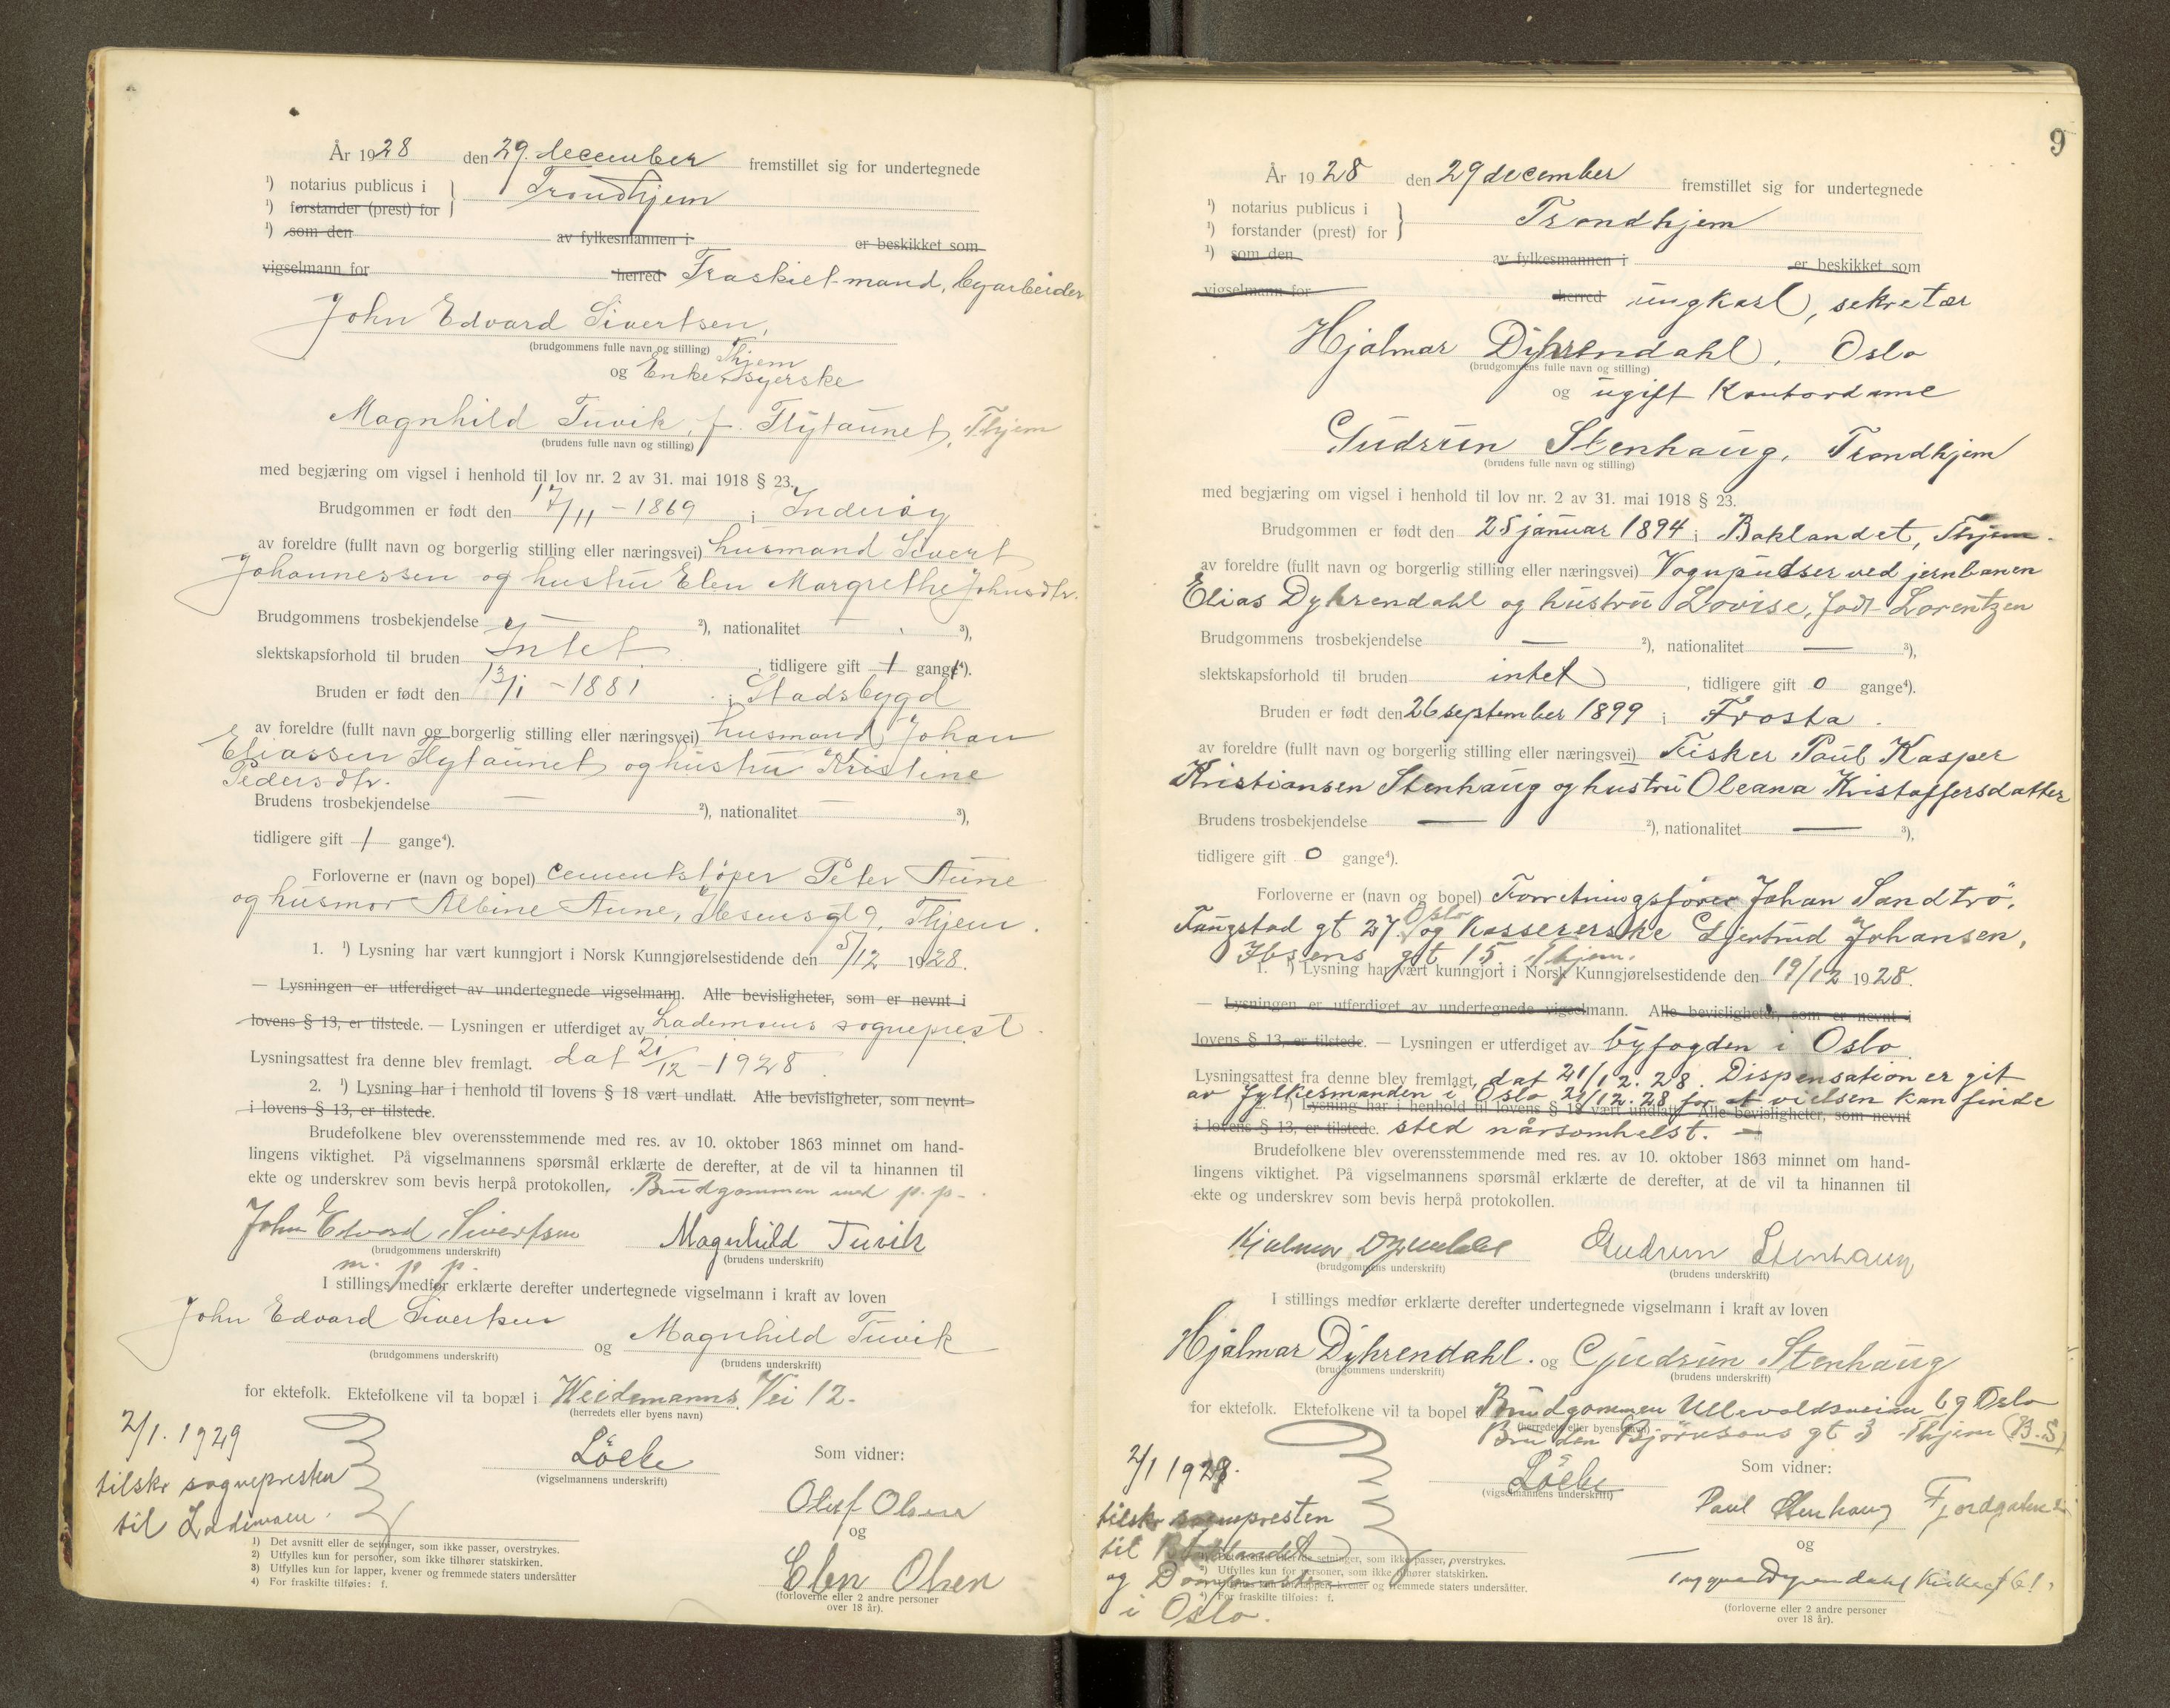 År 1928 den 29. december fremstillet sig for undertegnede
¹) notarius publicus i
Trondhjem
¹) forstander (prest) for
¹) som den av fylkesmannen i er beskikket som
vigselmann for herred Fraskilt mand, byarbeider
John Edvard Sivertsen,
(brudgommens fulle navn og stilling) Thjem
og Enke, syerske
Magnhild Tuvik, f. Flytaunet, Thjem
(brudens fulle navn og stilling)
med begjæring om vigsel i henhold til lov nr. 2 av 31. mai 1918 § 23.
Brudgommen er født den 17/11 - 1869 i Inderøy
av foreldre (fullt navn og borgerlig stilling eller næringsvei) husmand Sivert
Johannessen og hustru Elen Margrethe Johnsdtr.
Brudgommens trosbekjendelse ²), nationalitet ³),
slektskapsforhold til bruden Intet, tidligere gift 1 gang⁴).
Bruden er født den 13/1 - 1881 i Stadsbygd
av foreldre (fullt navn og borgerlig stilling eller næringsvei) husmand Johan
Eliassen Flytaunet og hustru Kristine
Pedersdtr.
Brudens trosbekjendelse — ²), nationalitet — ³),
tidligere gift 1 gange⁴).
Forloverne er (navn og bopel) cementstøper Peter Aune
og husmor Albine Aune, Ibsensgt 9, Thjem.
1. ¹) Lysning har vært kunngjort i Norsk Kunngjørelsestidende den 5/12 1928.
— Lysningen er utferdiget av undertegnede vigselmann. Alle bevisligheter, som er nevnt i
lovens § 13, er tilstede. — Lysningen er utferdiget av Lademoens sogneprest.
Lysningsattest fra denne blev fremlagt. dat 21/12 - 1928
2. ¹) Lysning har i henhold til lovens § 18 vært undlatt. Alle bevisligheter, som nevnt
i lovens § 13, er tilstede.
Brudefolkene blev overensstemmende med res. av 10. oktober 1863 minnet om hand-
lingens viktighet. På vigselmannens spørsmål erklærte de derefter, at de vil ta hinannen til
ekte og underskrev som bevis herpå protokollen, Brudgommen med p. p.
John Edvard Sivertsen Magnhild Tuvik
(brudgommens underskrift) (brudens underskrift)
m. p. p.
I stillings medfør erklærte derefter undertegnede vigselmann i kraft av loven
John Edvard Sivertsen og Magnhild Tuvik
(brudgommens underskrift) (brudens underskrift)
for ektefolk. Ektefolkene vil ta bopæl i Weidemanns Vei 12.
(herredets eller byens navn)
2/1. 1929
tilskr sognepresten
til Lademoen.
(vigselmannens underskrift)
Som vidner:
Oluf Olsen
og
Elen Olsen
(forloverne eller 2 andre personer
over 18 år).
1) Det avsnitt eller de setninger, som ikke passer, overstrykes.
2) Utfylles kun for personer, som ikke tilhører statskirken.
3) Utfylles kun for lapper, kvener og fremmede staters undersåtter
4) For fraskilte tilføies: f.
9
År 1928 den 29 december fremstillet sig for undertegnede
¹) notarius publicus i
Trondhjem
¹) forstander (prest) for
¹) som den av fylkesmannen i er beskikket som
vigselmann for herred ungkarl, sekretær
Hjalmar Dyhrendahl, Oslo
(brudgommens fulle navn og stilling)
og ugift Kontordame
Gudrun Stenhaug, Trondhjem
(brudens fulle navn og stilling)
med begjæring om vigsel i henhold til lov nr. 2 av 31. mai 1918 § 23.
Brudgommen er født den 25 januar 1894 i Baklandet, Thjem.
av foreldre (fullt navn og borgerlig stilling eller næringsvei) Vognpudser ved jernbanen
Elias Dyhrendahl og hustru Lovise, født Lorentzen
Brudgommens trosbekjendelse — ²), nationalitet — ³),
slektskapsforhold til bruden intet, tidligere gift 0 gange⁴).
Bruden er født den 26 september 1899 i Frosta.
av foreldre (fullt navn og borgerlig stilling eller næringsvei) Fisker Paul Kasper
Kristiansen Stenhaug og hustru Oleana Kristoffersdatter
Brudens trosbekjendelse — ²), nationalitet — ³),
tidligere gift 0 gange⁴).
Forloverne er (navn og bopel) Forretningsfører Johan Sandtrø,
Fougstad gt 27. Oslo og Kassererske Gjertrud Johansen,
Ibsens gt 15. Thjem.
1. ¹) Lysning har vært kunngjort i Norsk Kunngjørelsestidende den 19/12 1928.
— Lysningen er utferdiget av undertegnede vigselmann. Alle bevisligheter, som er nevnt i
lovens § 13, er tilstede. — Lysningen er utferdiget av byfogden i Oslo.
Lysningsattest fra denne blev fremlagt, dat 21/12. 28. Dispensation er git
av fylkesmanden i Oslo 21/12. 28 for at vielsen kan finde
2. ¹) Lysning har i henhold til lovens § 18 vært undlatt. Alle bevisligheter, som nevnt
i lovens § 13, er tilstede. sted nårsomhelst. —
Brudefolkene blev overensstemmende med res. av 10. oktober 1863 minnet om hand-
lingens viktighet. På vigselmannens spørsmål erklærte de derefter, at de vil ta hinannen til
ekte og underskrev som bevis herpå protokollen.
Hjalmar Dyrendahl Gudrun Stenhaug
(brudgommens underskrift) (brudens underskrift)
I stillings medfør erklærte derefter undertegnede vigselmann i kraft av loven
Hjalmar Dyhrendahl. og Gudrun Stenhaug
(brudgommens underskrift) (brudens underskrift)
for ektefolk. Ektefolkene vil ta bopel i Brudgommen Ullevoldsveien 69 Oslo
(herredets eller byens navn)
Bruden Bjørnsons gt 3 Thjem (B.S)
2/1 1929.
tilskr sognepresten
til Baklandet
og Domprosten
i Oslo.
(vigselmannens underskrift)
Som vidner:
Paul Stenhaug
og
(forloverne eller 2 andre personer
over 18 år).
1) Det avsnitt eller de setninger, som ikke passer, overstrykes.
2) Utfylles kun for personer, som ikke tilhører statskirken.
3) Utfylles kun for lapper, kvener og fremmede staters undersåtter.
4) For fraskilte tilføies: f.